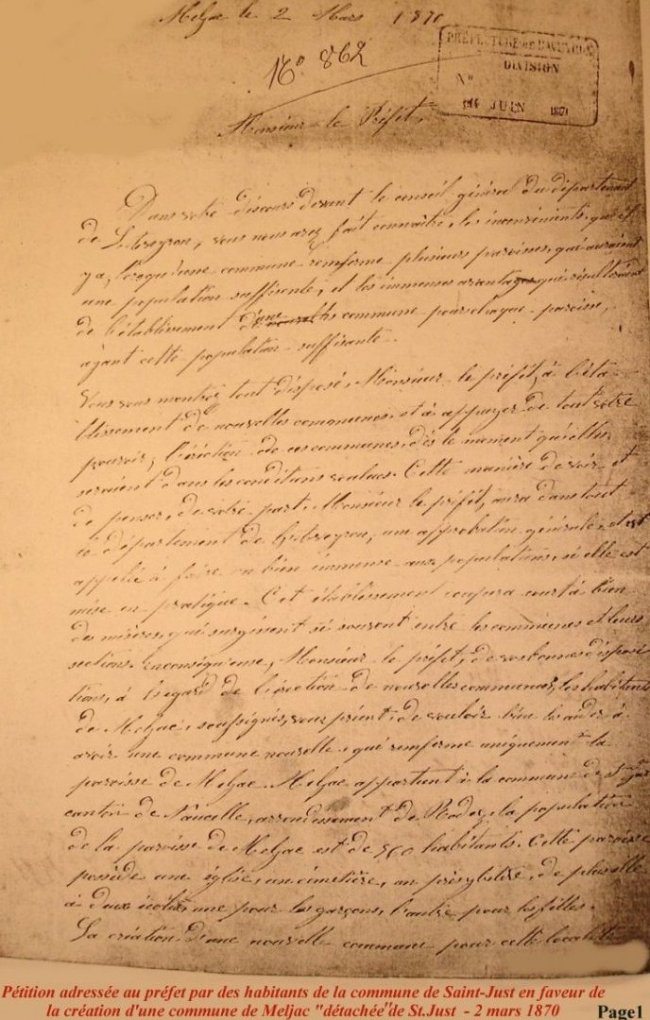 Meljac le 2 Mars 1870
N° 862
PRÉFECTURE DE L'AVEYRON
DIVISION
N°
JUIN 1870
Monsieur le Préfet,
Dans votre discours devant le conseil général du département
de L'Aveyron, vous nous avez fait connaître les inconvénients, qu'il
ya, lorsqu'une commune renferme plusieurs paroisses, qui auraient
une population suffisente, et les immenses avantages qui résulteraient
de l'établissement d'une commune pour chaque paroisse,
ayant cette population suffisante.
Vous vous montrez tout disposé, Monsieur le préfet, à l'éta
blissement de nouvelles communes et à appuyer de tout votre
pouvoir, l'érection de ces communes, dès le moment qu'elles
seraient dans les conditions voulues. Cette manière de voir et
de penser, de votre part, Monsieur le préfet, aura dans tout
ce département de L'Aveyron, une approbation générale et est
appelée à faire un bien immense aux populations, si elle est
mise en pratique. Cet établissement coupera court à bien
des misères, qui surgissent si souvent entre les communes et leurs
sections. En conséquense, Monsieur le préfet, de vos bonnes disposi
tions, à l'égard de l'érection de nouvelles communes, les habitants
de Meljac, soussignés, vous prient de vouloir bien les aider à
avoir une commune nouvelle, qui renferme uniquement la
paroisse de Meljac. Meljac appartient à la commune de St Just
canton de Naucelle, arrondissement de Rodez, la population
de la paroisse de Meljac est de 560 habitants. Cette paroisse
possède une église, un cimetière, un présbytère, de plus elle
a deux écoles, une pour les garçons, l'autre pour les filles.
La création d'une nouvelle commune pour cette localité
Pétition adressée au préfet par des habitants de la commune de Saint-Just en faveur de
la création d'une commune de Meljac "détachée"de St.Just - 2 mars 1870 Page1